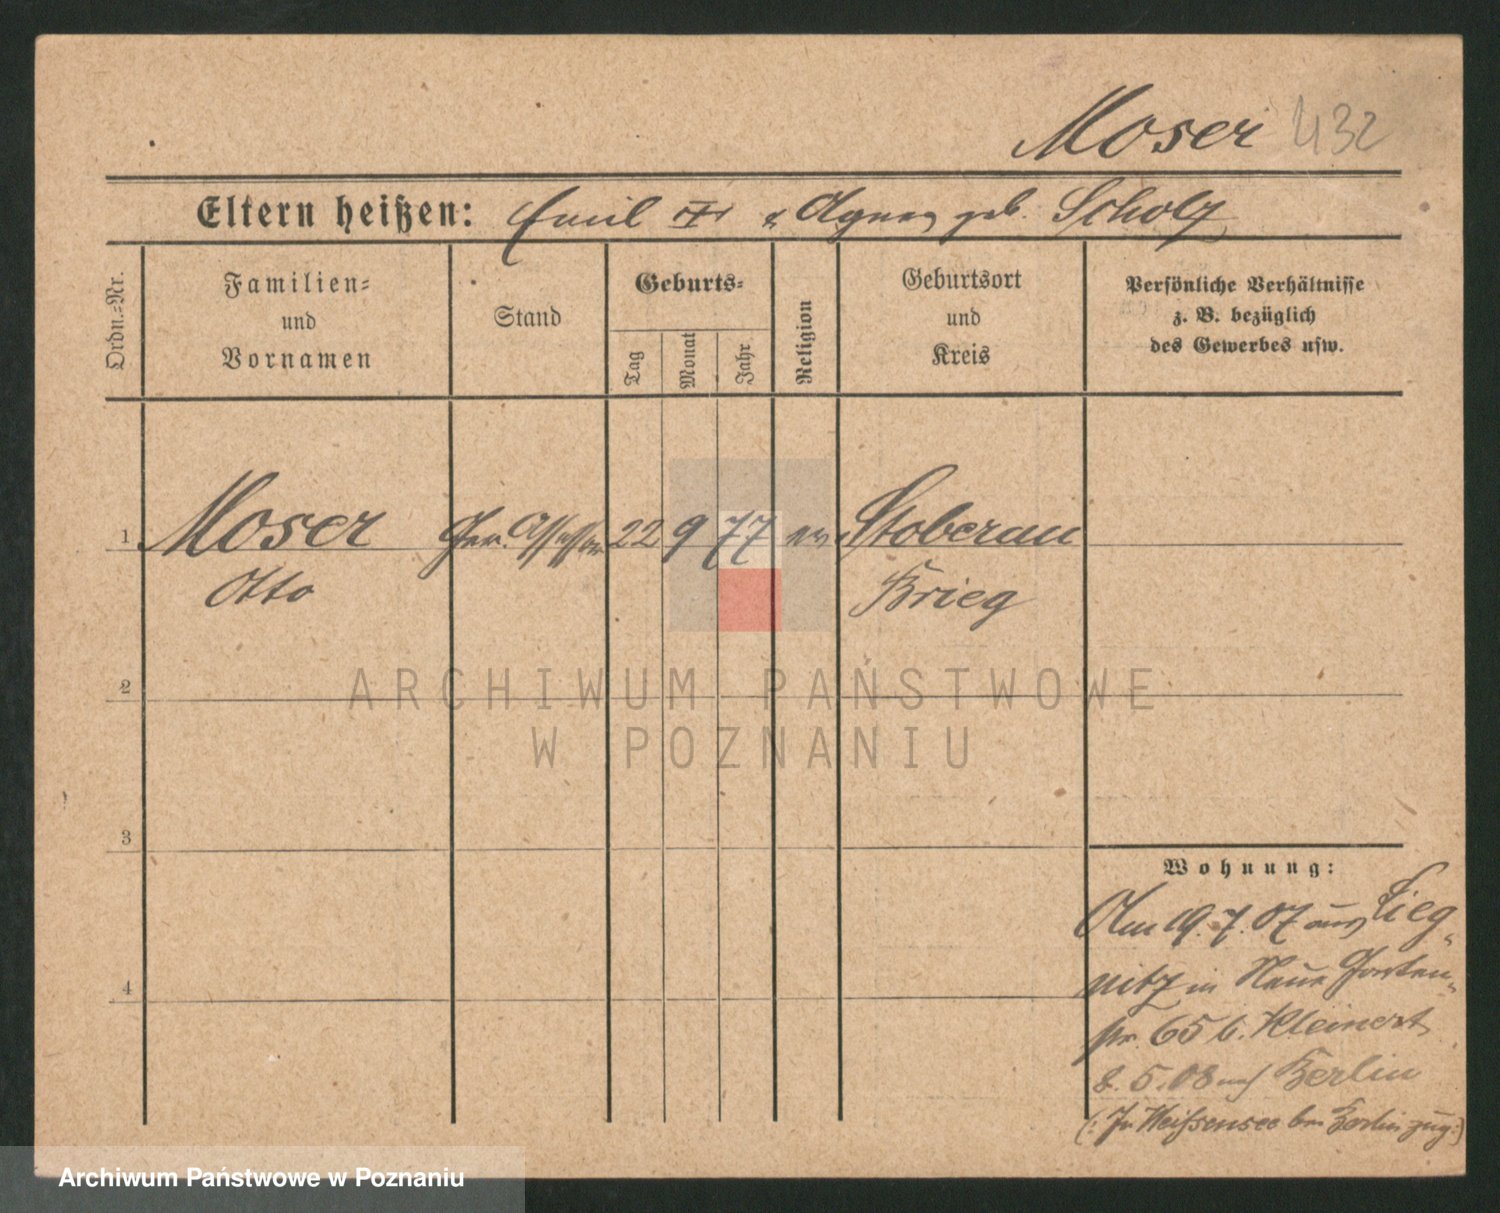 Moser 432
Eltern heißen: Emil & Agnes geb. Scholz
Ordn.-Nr.
Familien-
und
Vornamen
Stand
Geburts-
Tag
Monat
Jahr
Religion
Geburtsort
und
Kreis
Persönliche Verhältnisse
z. B. bezüglich
des Gewerbes usw.
1 Moser Ger. Assessor 22 9 77 ev. Stoberau
Otto Brieg
2
3
4
Wohnung:
Am 19.7.07 aus Lieg-
nitz in Neue Garten-
str. 65 b. Kleinert
8.5.08 nach Berlin
(: In Weißensee bei Berlin zug. :)
ARCHIWUM PAŃSTWOWE
W POZNANIU
Archiwum Państwowe w Poznaniu